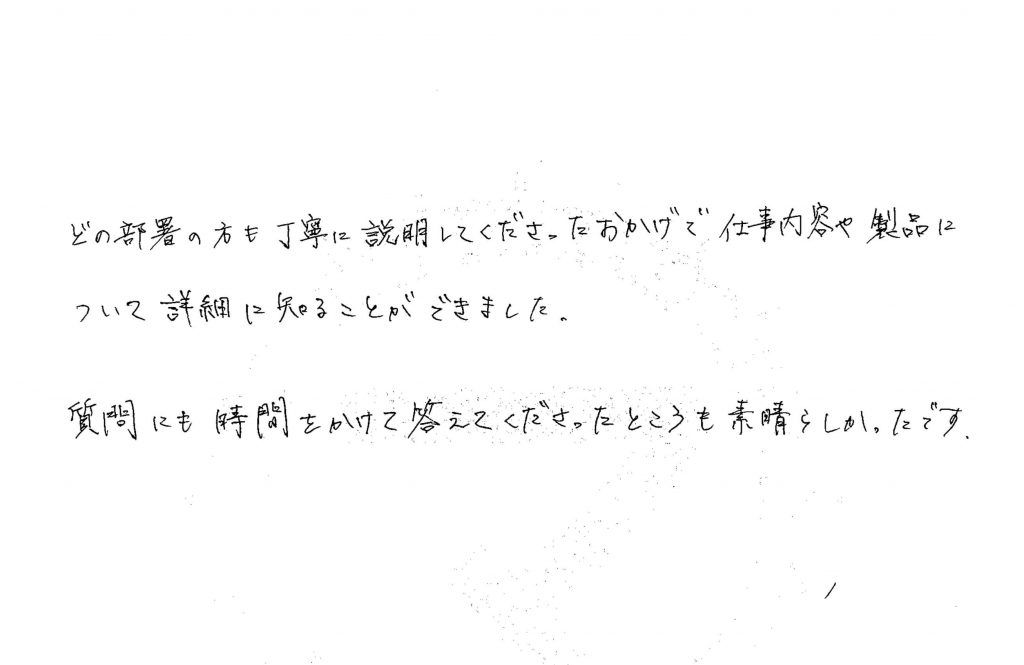 どの部署の方も丁寧に説明してくださったおかげで仕事内容や製品に
ついて詳細に知ることができました。
質問にも時間をかけて答えてくださったところも素晴らしかったです.